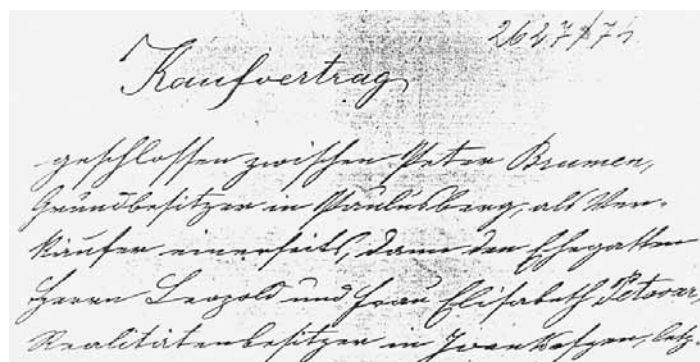 2627
Kaufvertrag
geschlossen zwischen Peter Brumen,
Grundbesitzer in Paulusberg, als Ver-
käufer einerseits, dann den Ehegatten
Herrn Leopold und Frau Elisabeth Petovar,
Realitätenbesitzer in